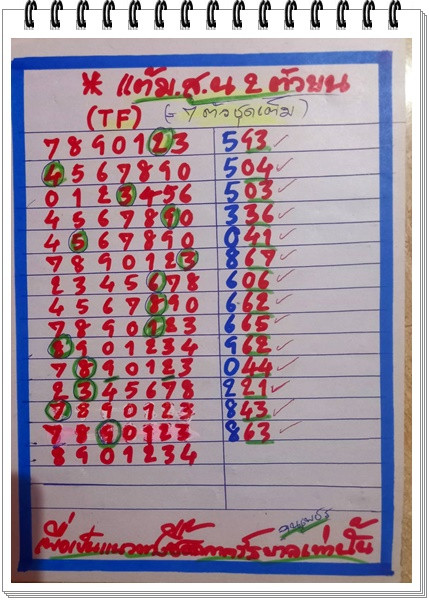 * แต้ม.ส.น 2 ตัวบน
(TF) (= 7 ตัวชุดเต็ม)
7 8 9 0 1 2 3 593 ✓
4 5 6 7 8 9 0 504 ✓
0 1 2 3 4 5 6 503 ✓
4 5 6 7 8 9 0 336 ✓
4 5 6 7 8 9 0 041 ✓
7 8 9 0 1 2 3 867 ✓
2 3 4 5 6 7 8 606 ✓
4 5 6 7 8 9 0 662 ✓
7 8 9 0 1 2 3 665 ✓
8 9 0 1 2 3 4 962 ✓
7 8 9 0 1 2 3 044 ✓
2 3 4 5 6 7 8 221 ✓
7 8 9 0 1 2 3 843 ✓
7 8 9 0 1 2 3 863 ✓
8 9 0 1 2 3 4
เพื่อเป็นแนวทาง เท่านั้น